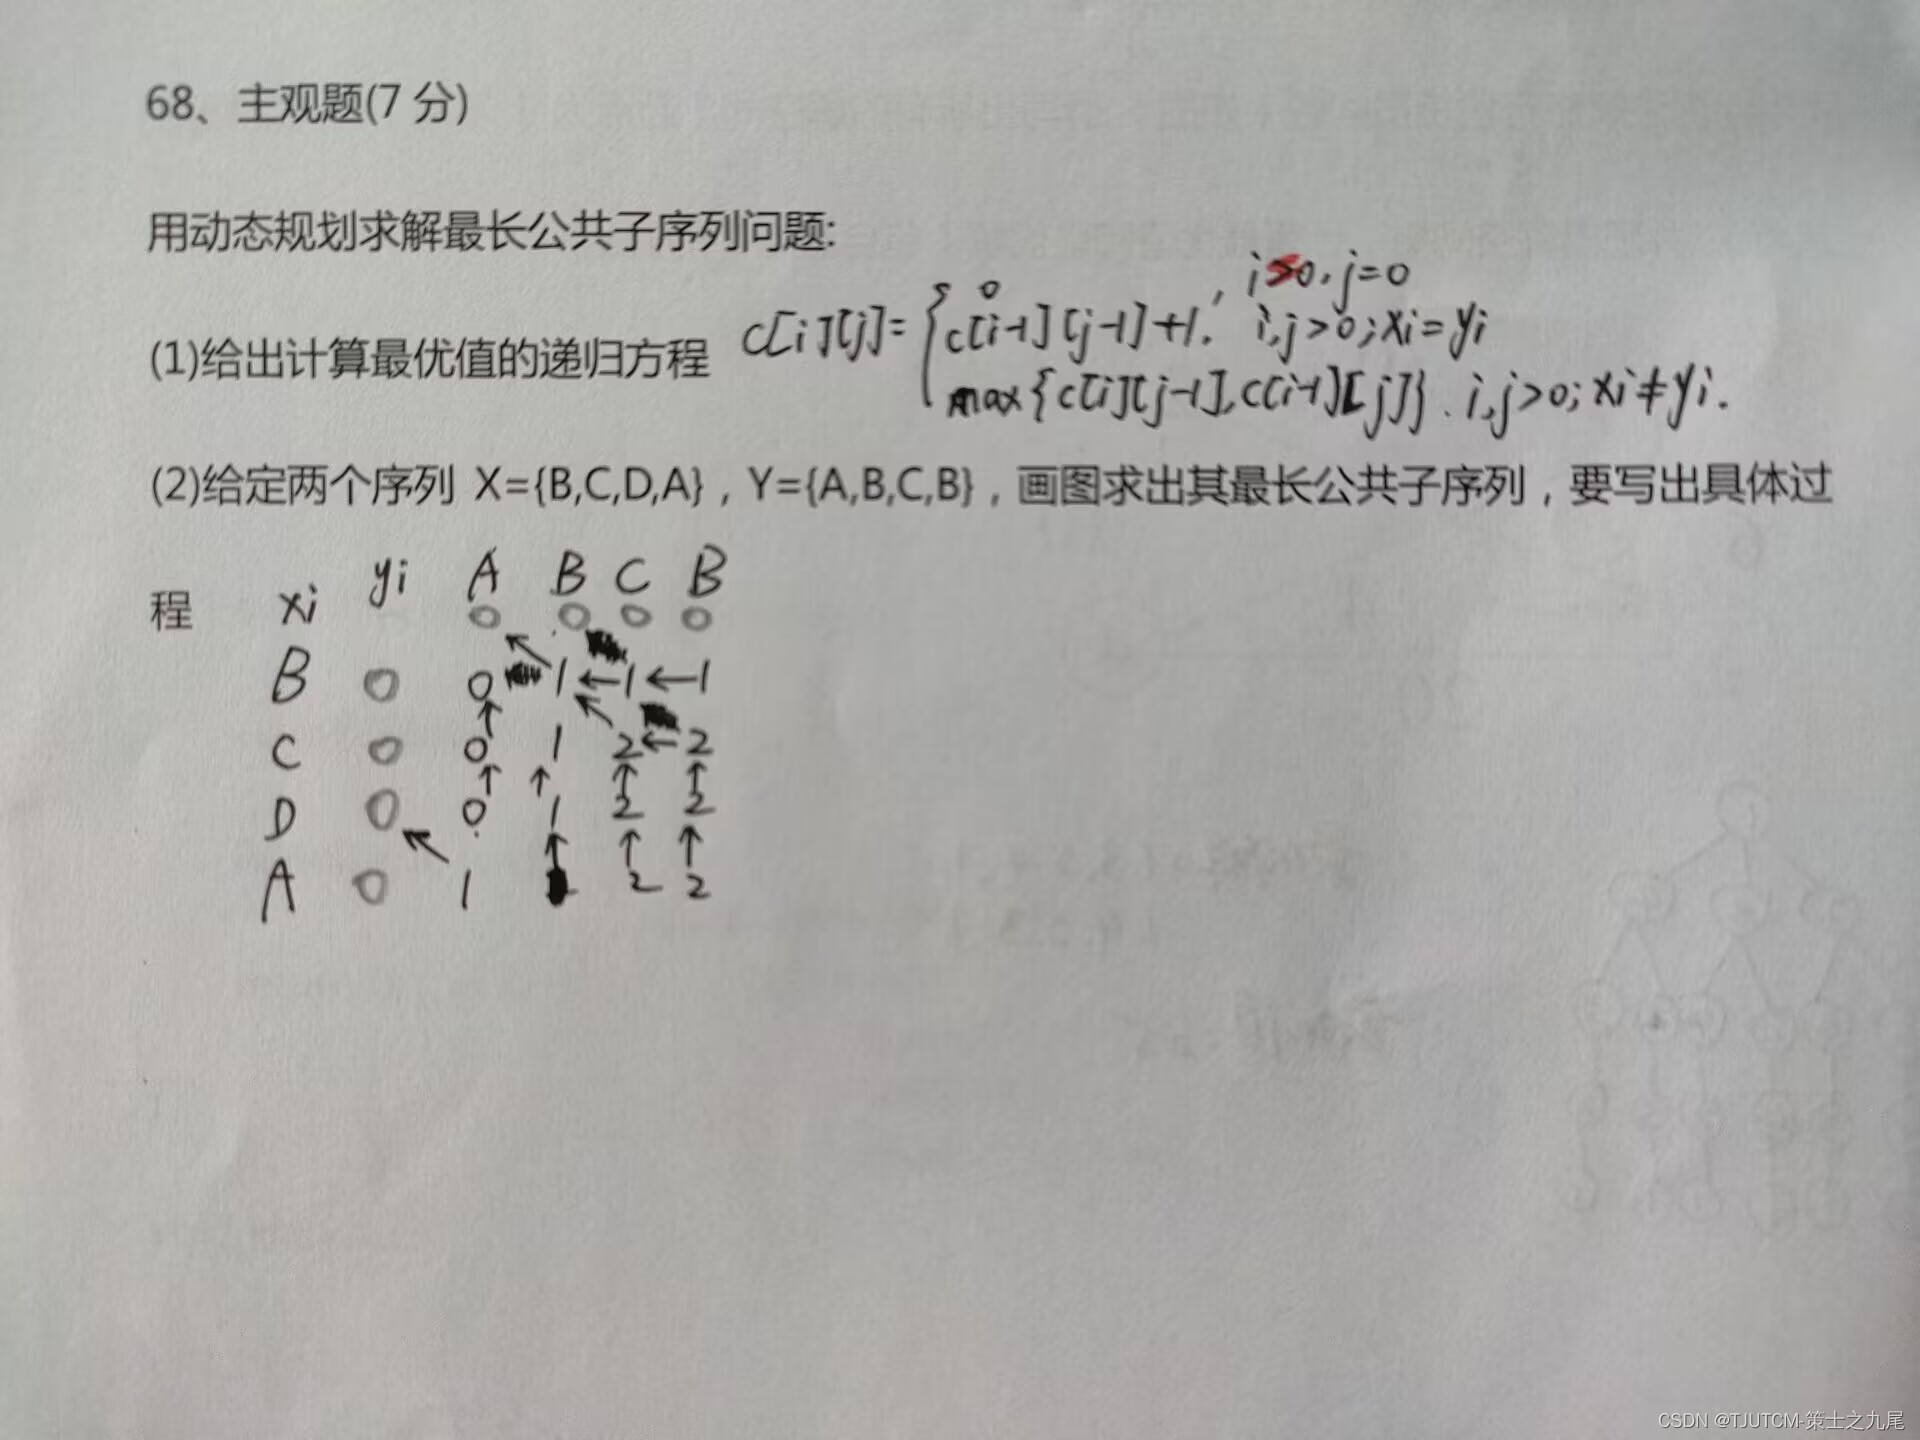 68、主观题(7 分)
用动态规划求解最长公共子序列问题:
0 , i>0, j=0
(1)给出计算最优值的递归方程 c[i][j]={ c[i-1][j-1]+1. i,j>0; xi=yi
max{c[i][j-1],c[i-1][j]}. i,j>0; xi≠yi.
(2)给定两个序列 X={B,C,D,A}，Y={A,B,C,B}，画图求出其最长公共子序列，要写出具体过
程 xi yi A B C B
0 0 0 0
B 0 0 ↖1 ←1 ←1
C 0 0 1 ↖2 ←2
↑ ↑ ↑ ↑
D 0 0 1 2 2
↖ ↑ ↑ ↑
A 0 1 2 2
CSDN @TJUTCM-策士之九尾